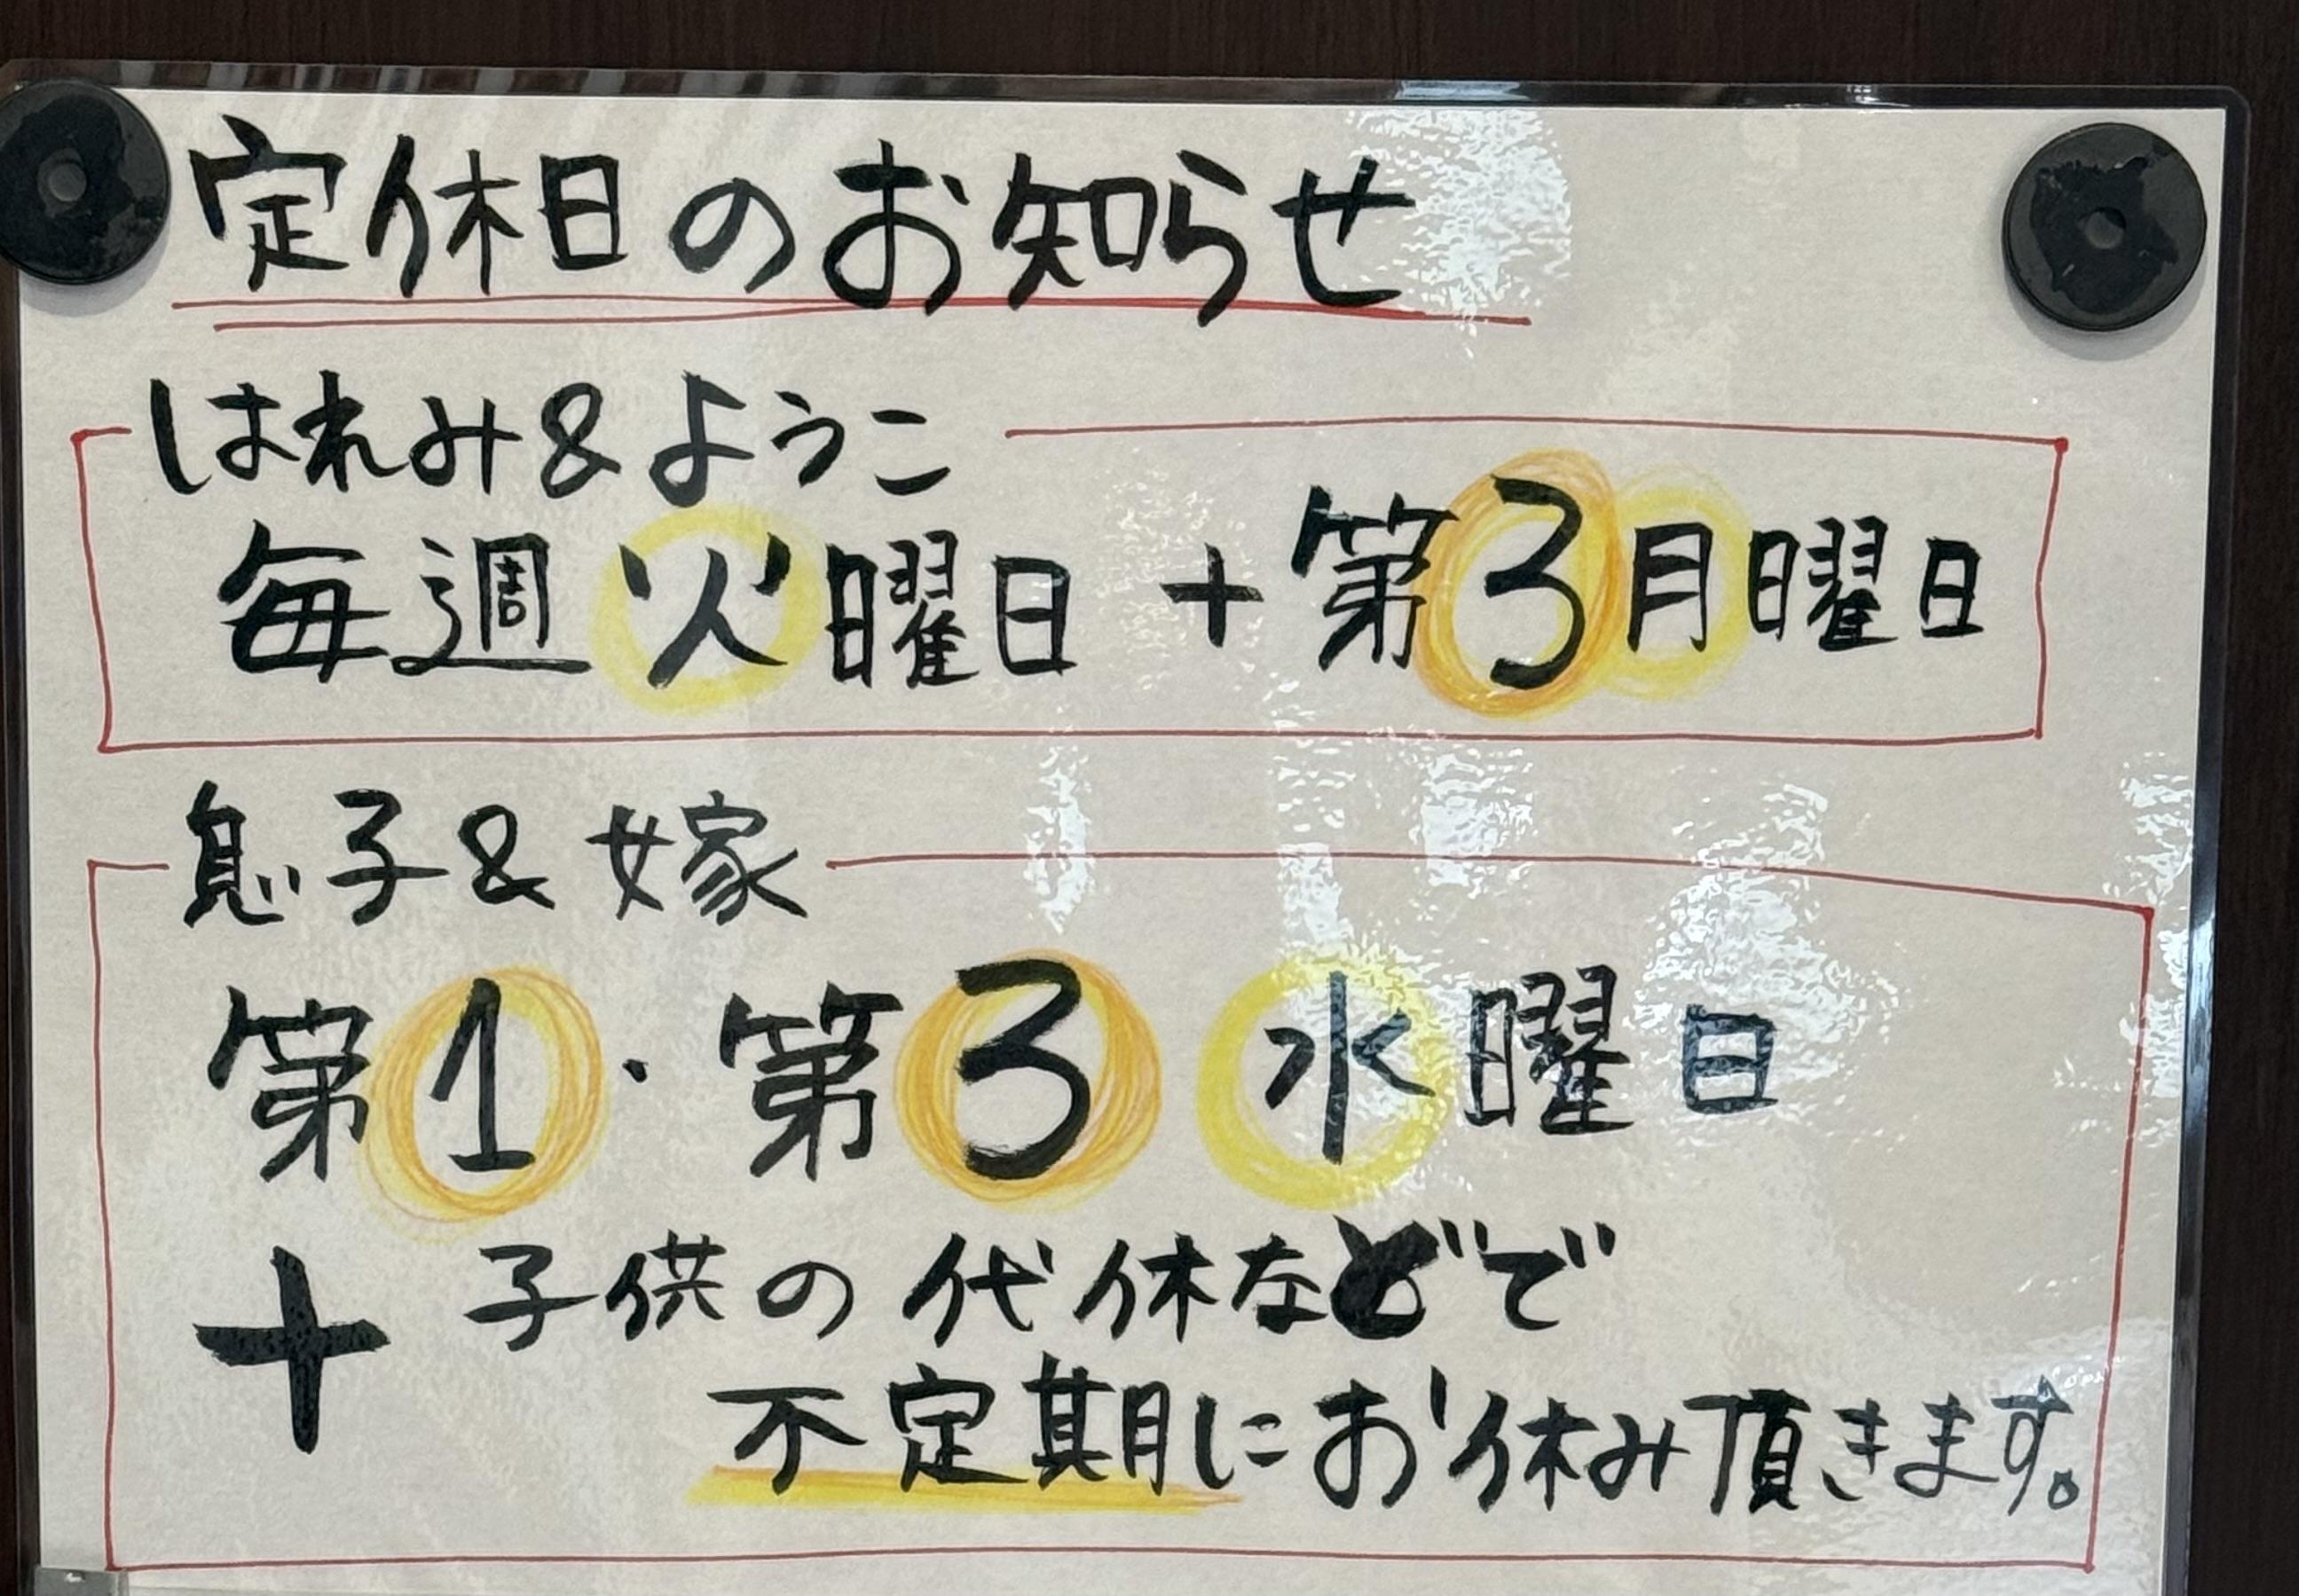 定休日のお知らせ
はれみ&ようこ
毎週火曜日+第3月曜日
息子&嫁
第1・第3水曜日
+子供の代休などで
不定期にお休み頂きます。